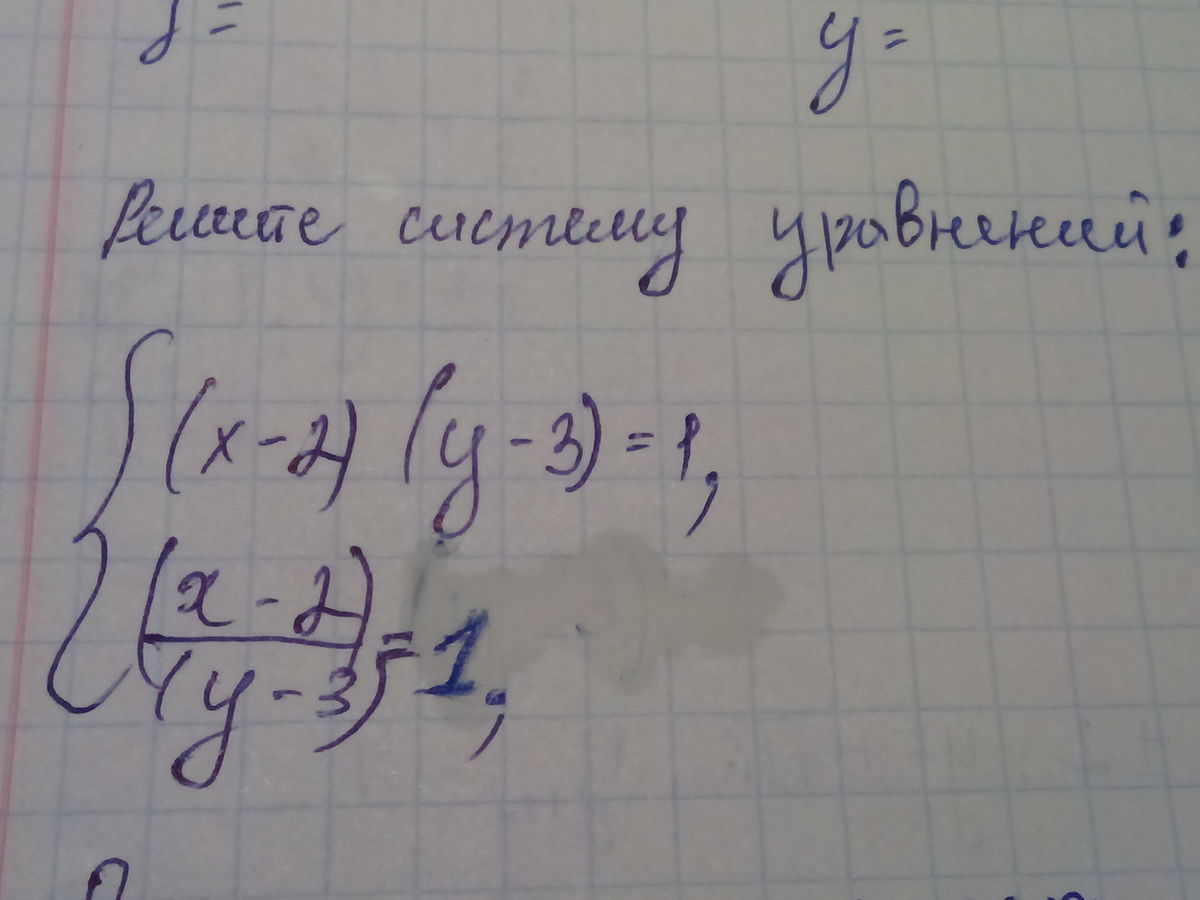 y = y =
Решите систему уравнений:
(x-2) (y-3) = 1,
(x-2)
(y-3) = 1,